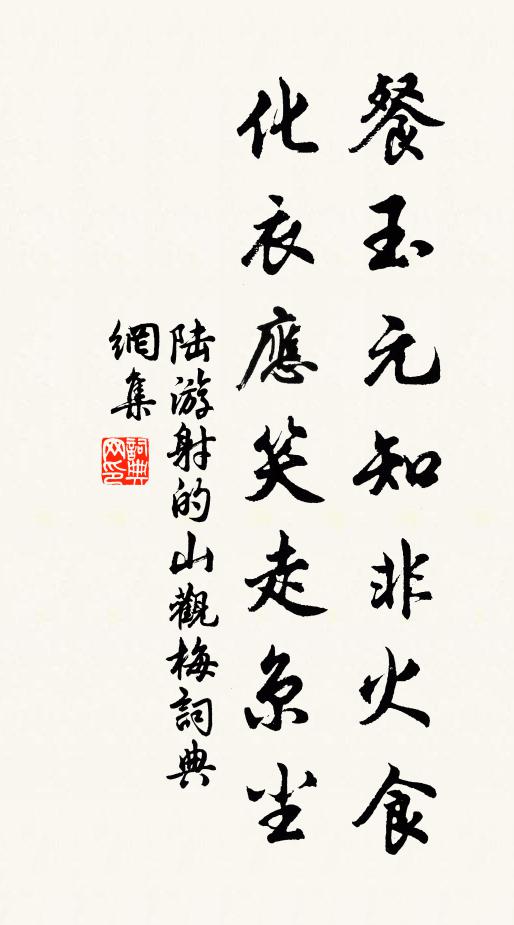 餐玉元知非火食
化衣應笑走京尘
陆游射的山觀梅詞典
網集
詞典
网印